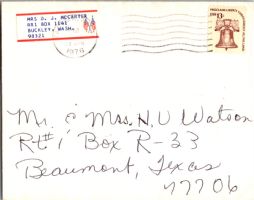 MRS D. J. MCCARTER
881 BOX 1141
BUCKLEY, WASH.
98321
1976
13c
Mr. & Mrs. H. V. Watson
Rt#1 Box R-33
Beaumont, Texas
77706